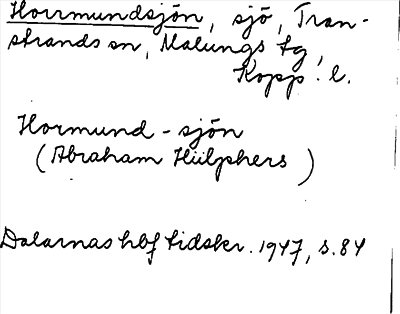 Horrmundsjön, sjö, Tran-
strands sn, Malungs tg,
Kopp. l.
Hormund-sjön
(Abraham Hülphers)
Dalarnas hbf tidskr. 1947, s. 84